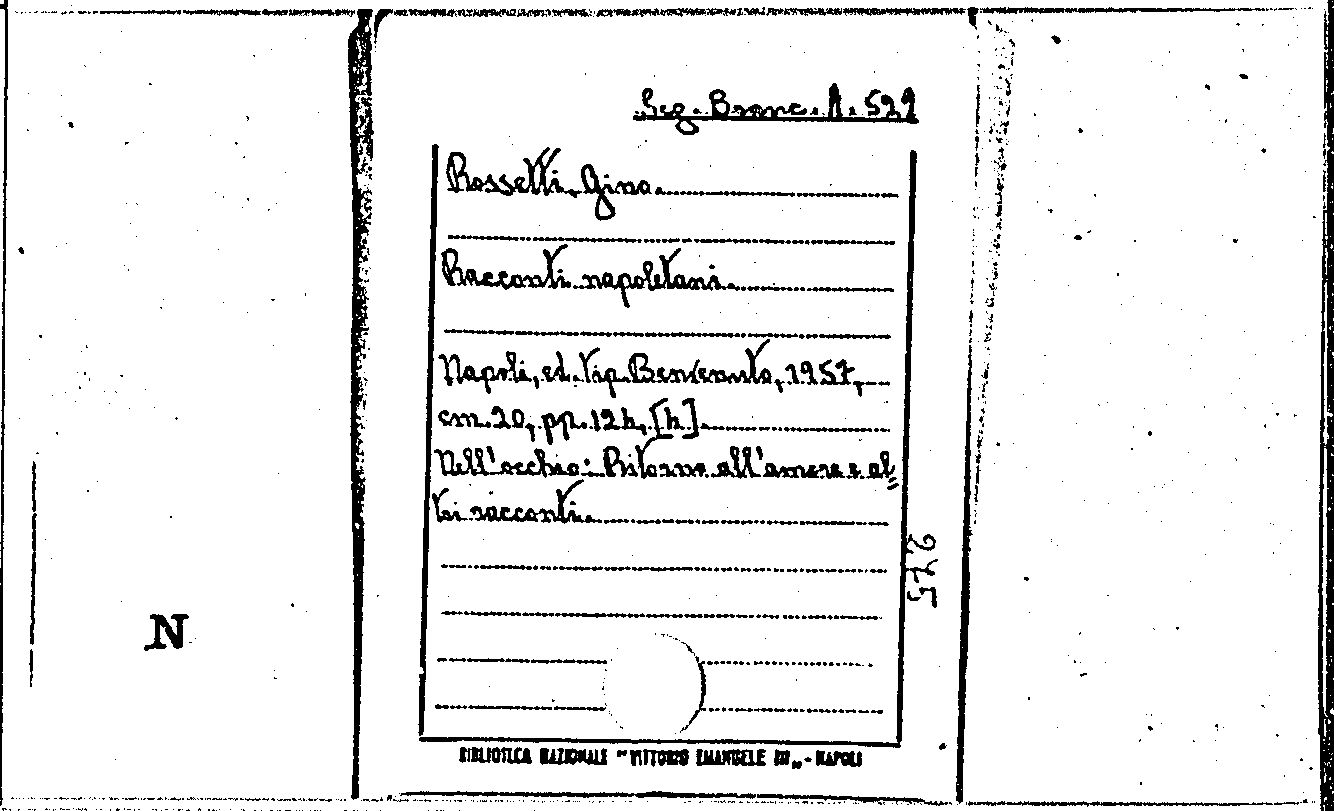 Seg. Branc. A. 529
Rossetti, Gino.
Racconti napoletani.
Napoli, ed. Tip. Benvenuto, 1957,
cm. 20, pp. 124, [4].
Nell'occhio: Ritorno all'amore e al=
tri racconti.
275
N
BIBLIOTECA NAZIONALE "VITTORIO EMANUELE III" - NAPOLI